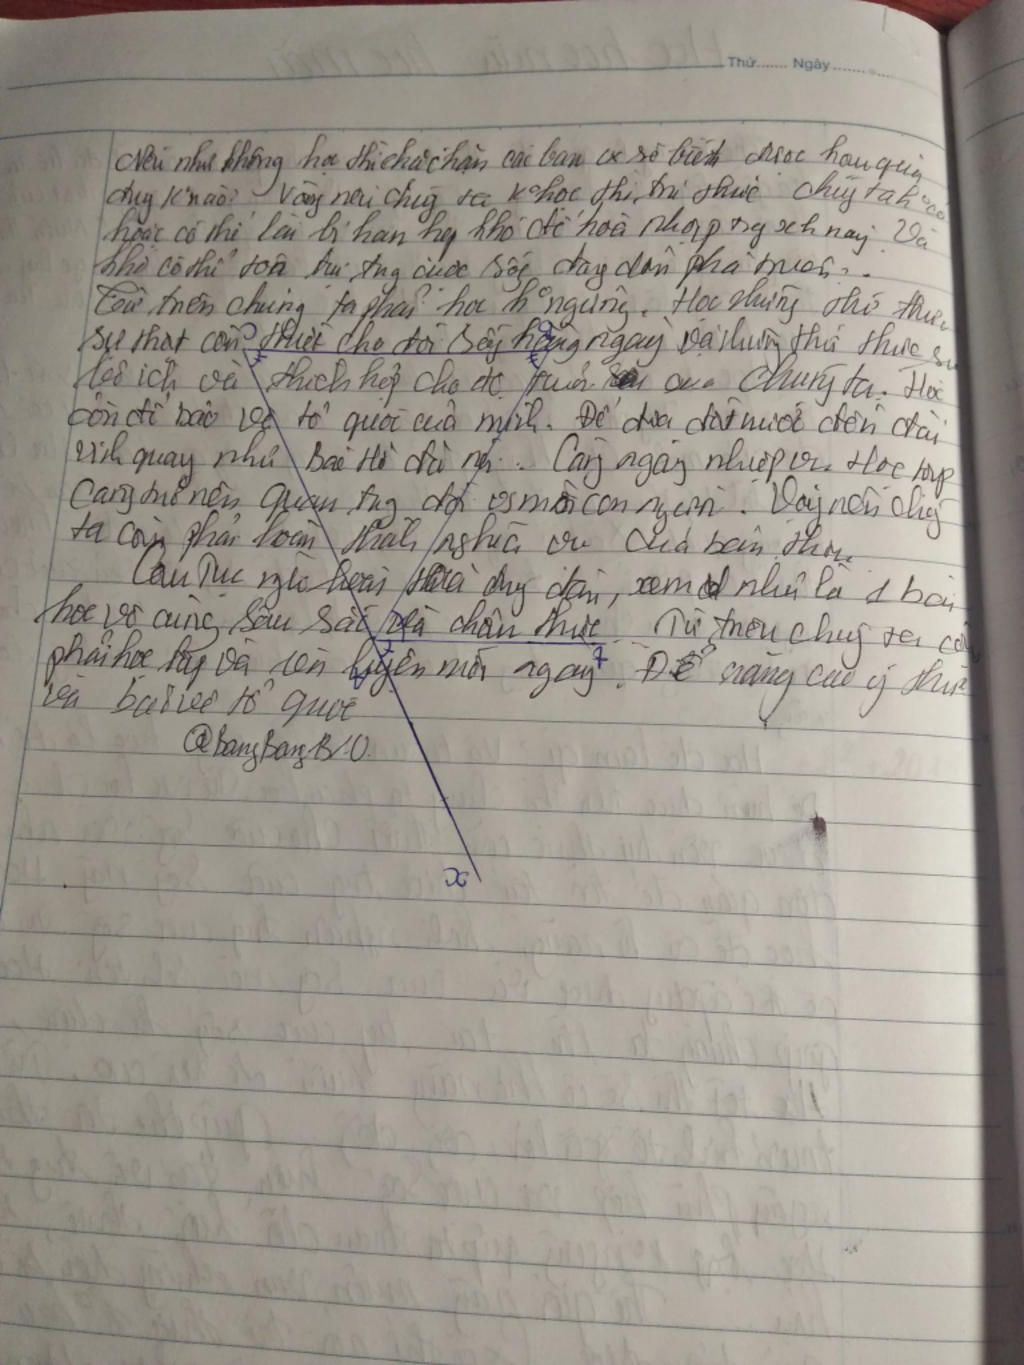 Thứ....... Ngày.............
Nếu như không học thì chắc chắn các bạn sẽ biết được hậu quả
đúng k nào? Vậy nếu chúng ta k học thì, tri thức chúng ta k có
hoặc có thể lại bị hạn hẹp khó để hoà nhập trg xh này. Và
khó có thể tồn tại trg cuộc sống đang dần phát triển...
Từ trên chúng ta phải học k ngừng. Học những thứ thực
sự thật cần thiết cho đời sống hằng ngày và những thứ thực sự
bổ ích và thích hợp cho độ tuổi của chúng ta. Học
còn để bảo vệ tổ quốc của mình. Để đưa đất nước đến đài
vinh quang như Bác Hồ đã nói.. Càng ngày nhiệp vụ học tập
càng trở nên quan trg đối vs mỗi con người. Vậy nên chúng
ta cần phải hoàn thành nghĩa vụ của bản thân.
Câu tục ngữ hoàn toàn đúng đắn, xem như là 1 bài
học vô cùng sâu sắc và chân thực. Từ trên chúng ta cần
phải học tập và rèn luyện mỗi ngày. Để nâng cao ý thức
và bảo vệ tổ quốc
@BangBangB/O.
x